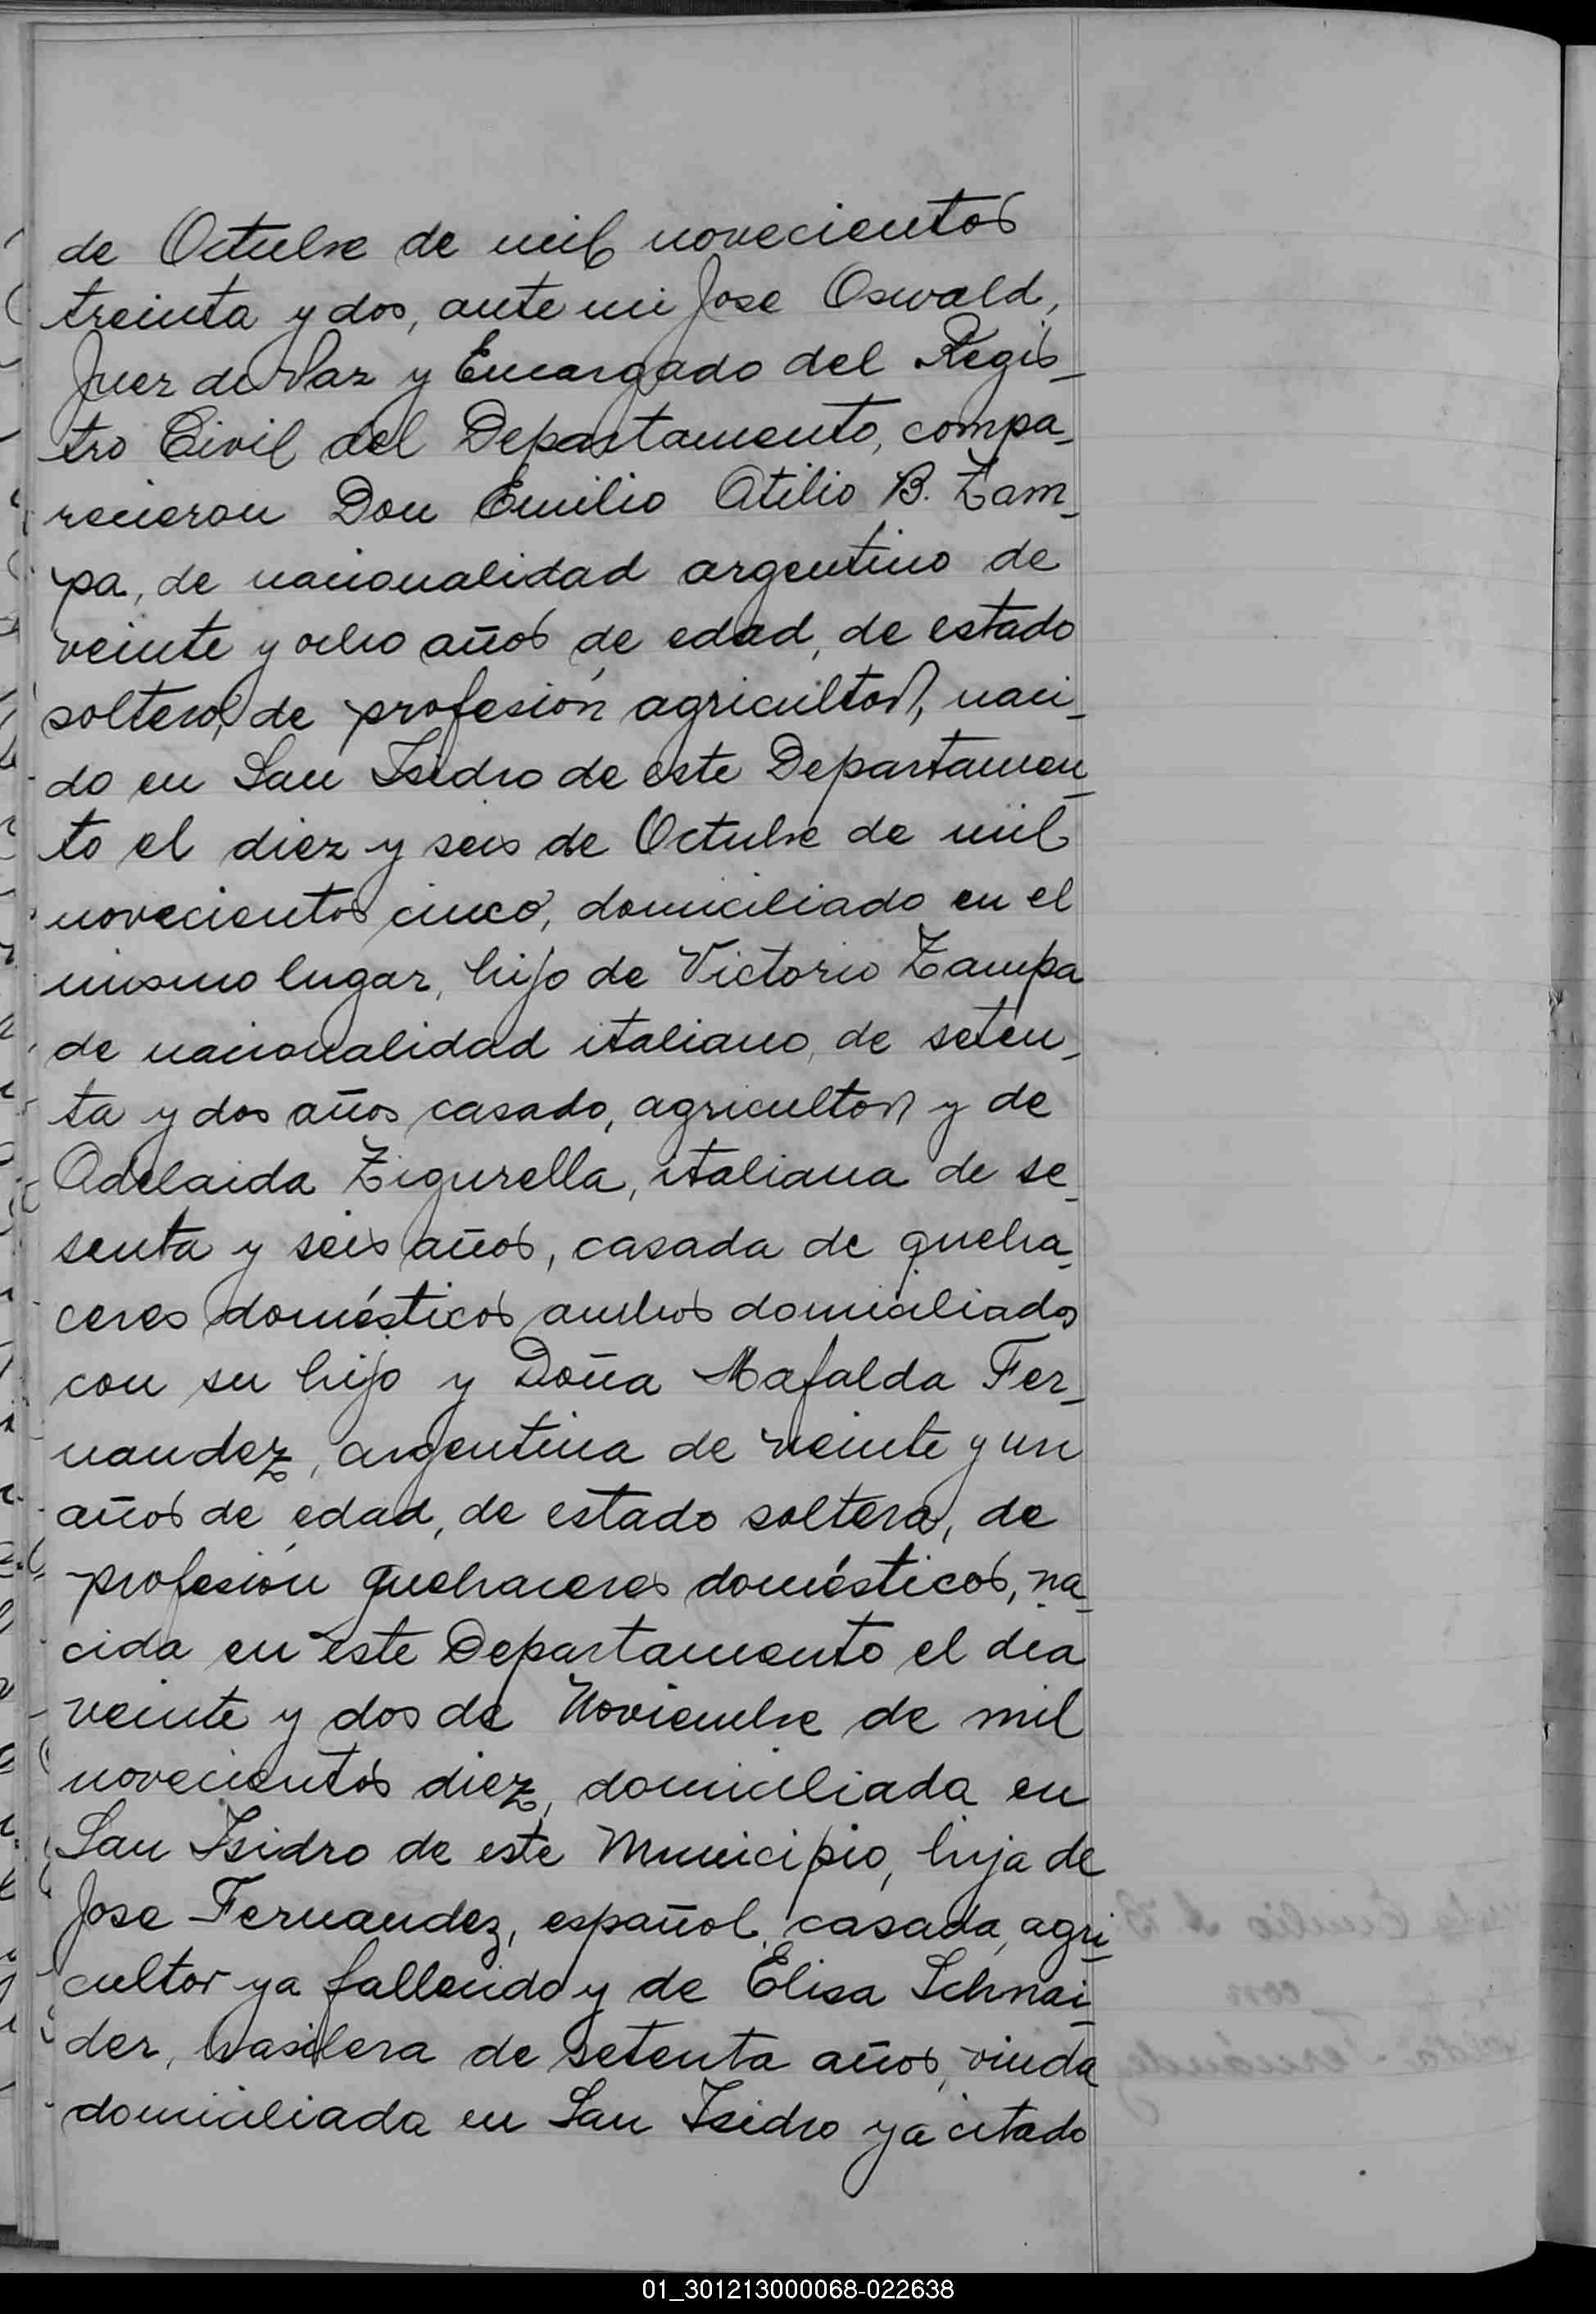 de Octubre de mil novecientos
treinta y dos, ante mi Jose Oswald,
Juez de Paz y Encargado del Regis_
tro Civil del Departamento, compa_
recieron Don Emilio Atilio B. Zam_
pa, de nacionalidad argentino de
veinte y ocho años de edad, de estado
soltero, de profesión agricultor, naci_
do en San Isidro de este Departamen_
to el diez y seis de Octubre de mil
novecientos cinco, domiciliado en el
mismo lugar, hijo de Victorio Zampa
de nacionalidad italiano, de seten_
ta y dos años casado, agricultor y de
Adelaida Zigurella, italiana de se_
senta y seis años, casada de queha_
ceres domésticos ambos domiciliados
con su hijo y Doña Mafalda Fer_
nandez, argentina de veinte y un
años de edad, de estado soltera, de
profesión quehaceres domésticos, na_
cida en este Departamento el dia
veinte y dos de Noviembre de mil
novecientos diez, domiciliada en
San Isidro de este Municipio, hija de
Jose Fernandez, español, casada, agri_
cultor ya fallecido y de Elisa Schnai_
der, brasilera de setenta años, viuda
domiciliada en San Isidro ya citado
01_301213000068-022638